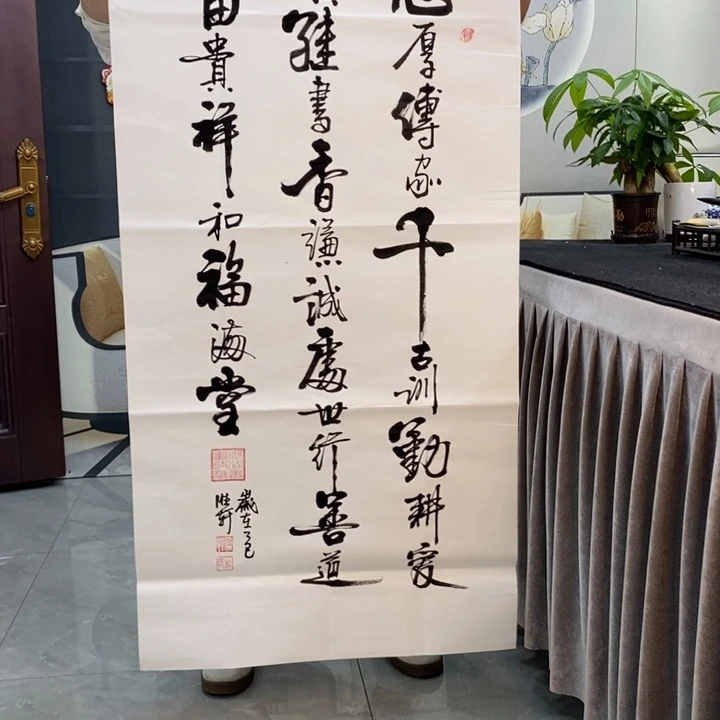 忠厚傳家千古訓勤耕愛
繼書香謙誠處世行善道
富貴祥和福滿堂
歲在乙巳